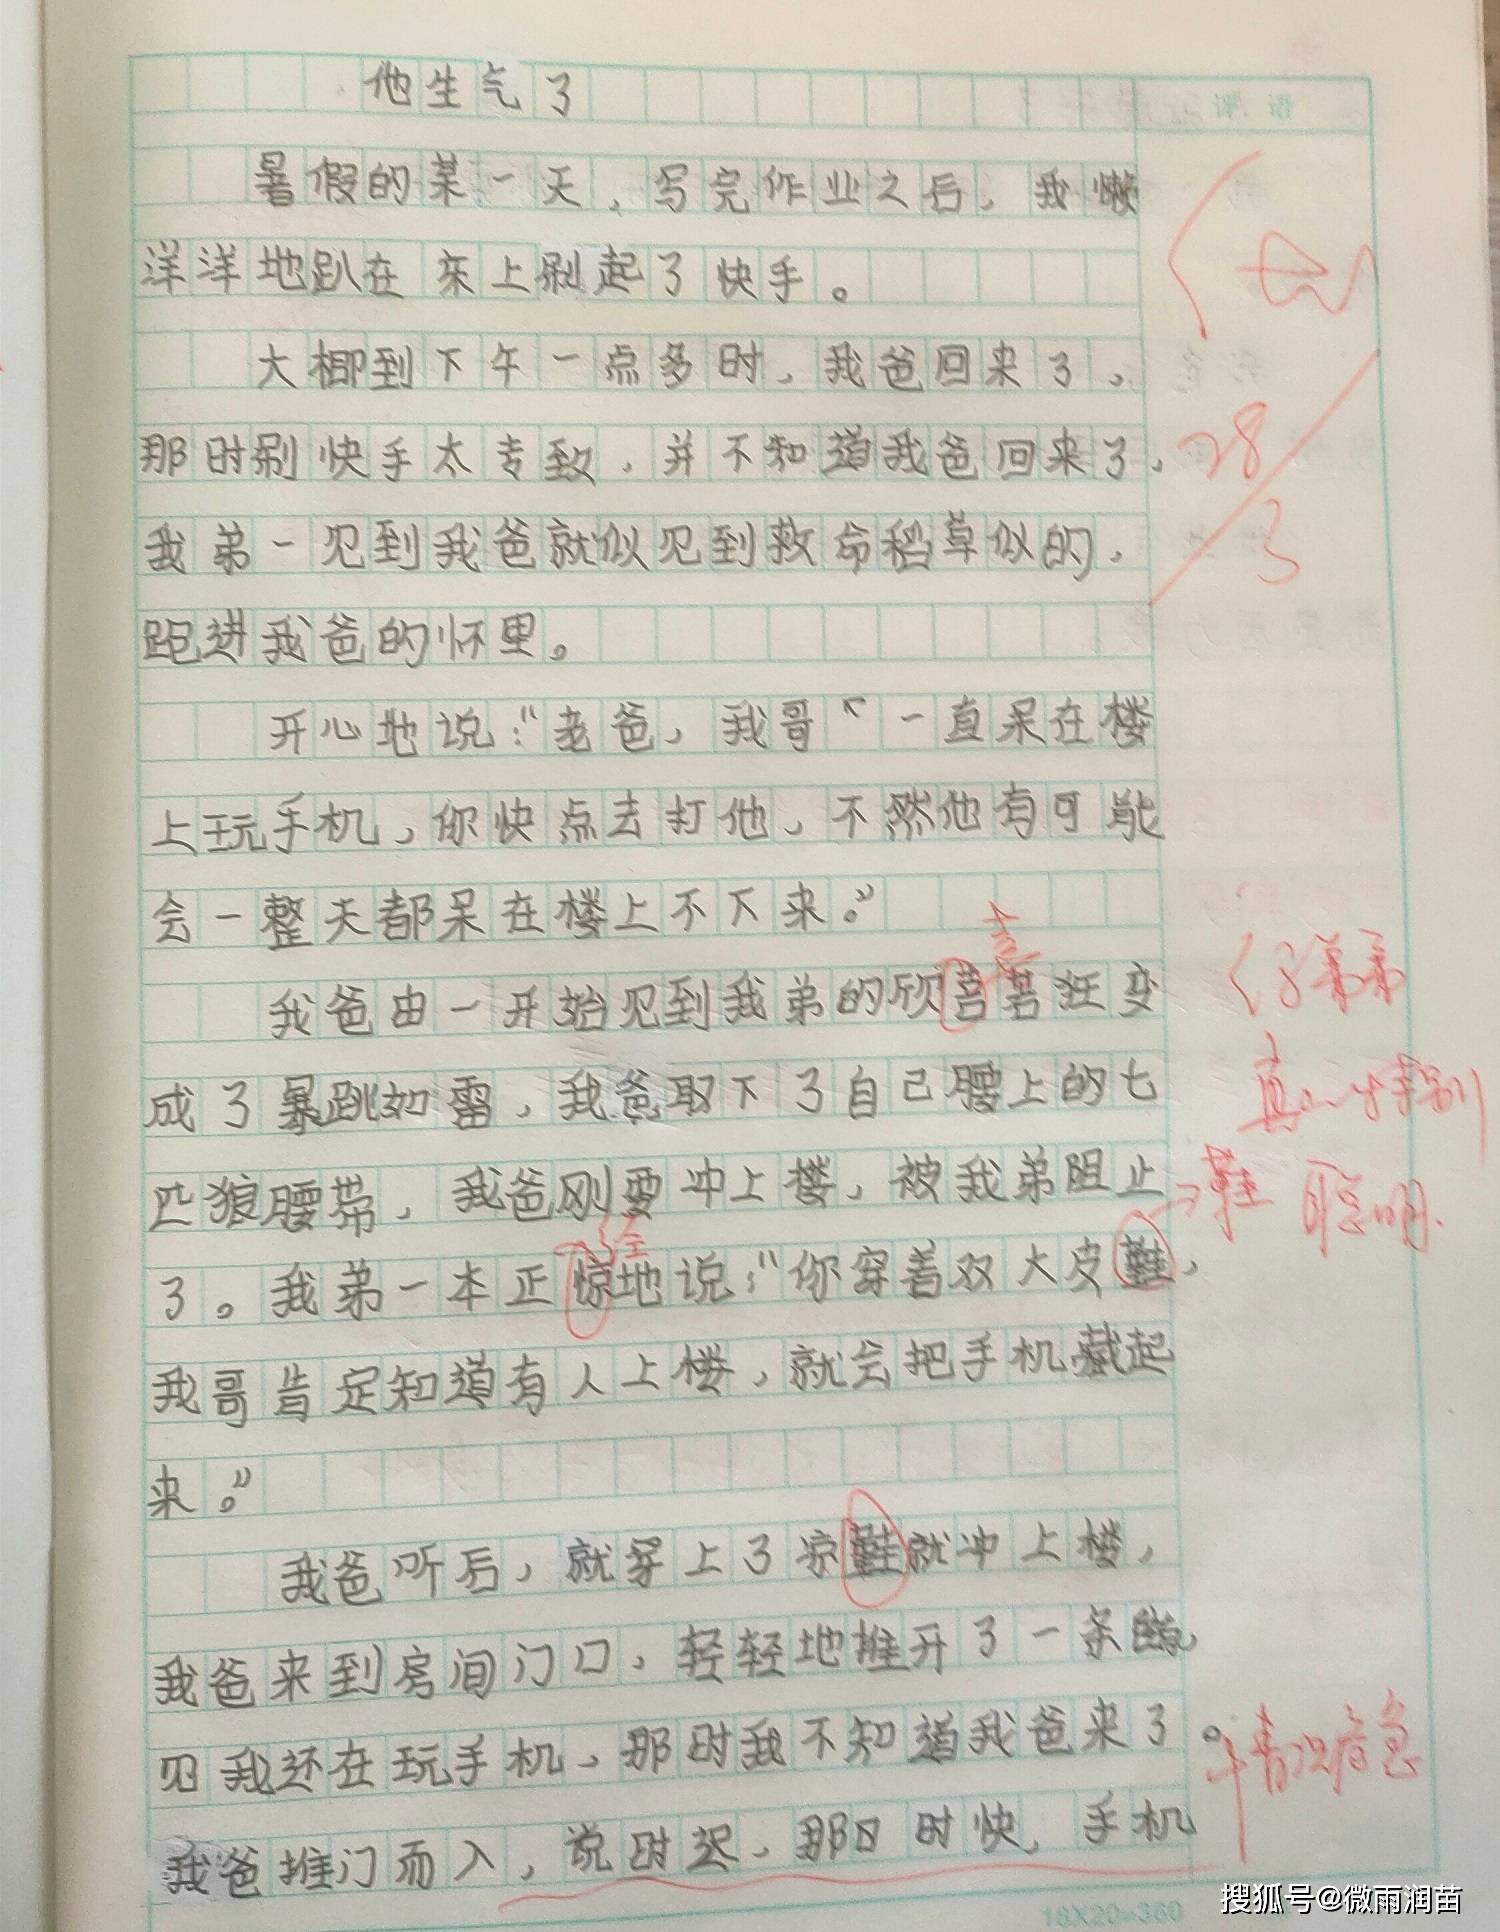 他生气了
评语
暑假的某一天，写完作业之后，我懒
洋洋地趴在床上刷起了快手。
大概到下午一点多时，我爸回来了，
那时刷快手太专致，并不知道我爸回来了，
28
我弟一见到我爸就似见到救命稻草似的，
3
跑进我爸的怀里。
开心地说："老爸，我哥一直呆在楼
上玩手机，你快点去打他，不然他有可能
会一整天都呆在楼上不下来。"
喜
我爸由一开始见到我弟的欣若若狂变
弟弟
成了暴跳如雷，我爸取下了自己腰上的七
真
匹狼腰带，我爸刚要冲上楼，被我弟阻止
鞋 聪明
经
了。我弟一本正惊地说："你穿着双大皮鞋，
我哥肯定知道有人上楼，就会把手机藏起
来。"
我爸听后，就穿上了凉鞋就冲上楼，
我爸来到房间门口，轻轻地推开了一条
见我还在玩手机，那时我不知道我爸来了。
情况危急
我爸推门而入，说时迟，那时快，手机
18X20=360
搜狐号@微雨润苗